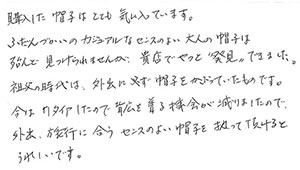 購入した帽子はとても気に入っています。
ふだんづかいのカジュアルなセンスのよい大人の帽子は
殆んど見つけられませんが、貴店でやっと"発見"できました。
祖父の時代は、外出に必ず帽子をかぶっていたものです。
今はリタイアしたので背広を着る機会が減りましたので、
外出、旅行に合うセンスのよい帽子を扱って頂けると
うれしいです。